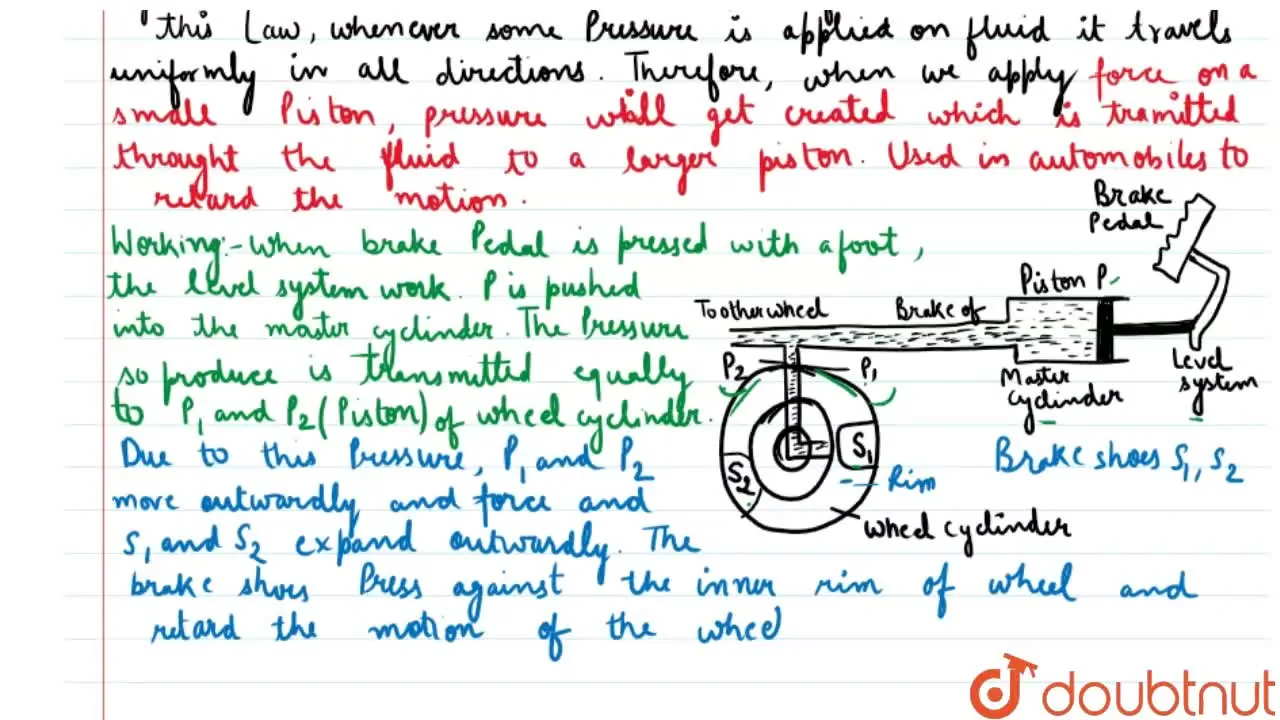 this Law, whenever some Pressure is applied on fluid it travels
uniformly in all directions. Therefore, when we apply force on a
small Piston, pressure will get created which is tramitted
throught the fluid to a larger piston. Used in automobiles to
retard the motion.
Brake
Pedal
Working:- When brake Pedal is pressed with a foot,
the level system work. P is pushed
into the master cyclinder. The Pressure
so produce is transmitted equally
to P1 and P2 (Piston) of wheel cyclinder.
Due to this Pressure, P1 and P2
move outwardly and force and
S1 and S2 expand outwardly. The
brake shoes Press against the inner rim of wheel and
retard the motion of the wheel
Piston P
To other wheel
Brake of
P2
P1
Master
cyclinder
Level
system
S1
S2
Rim
Wheel cyclinder
Brake shoes S1, S2
doubtnut